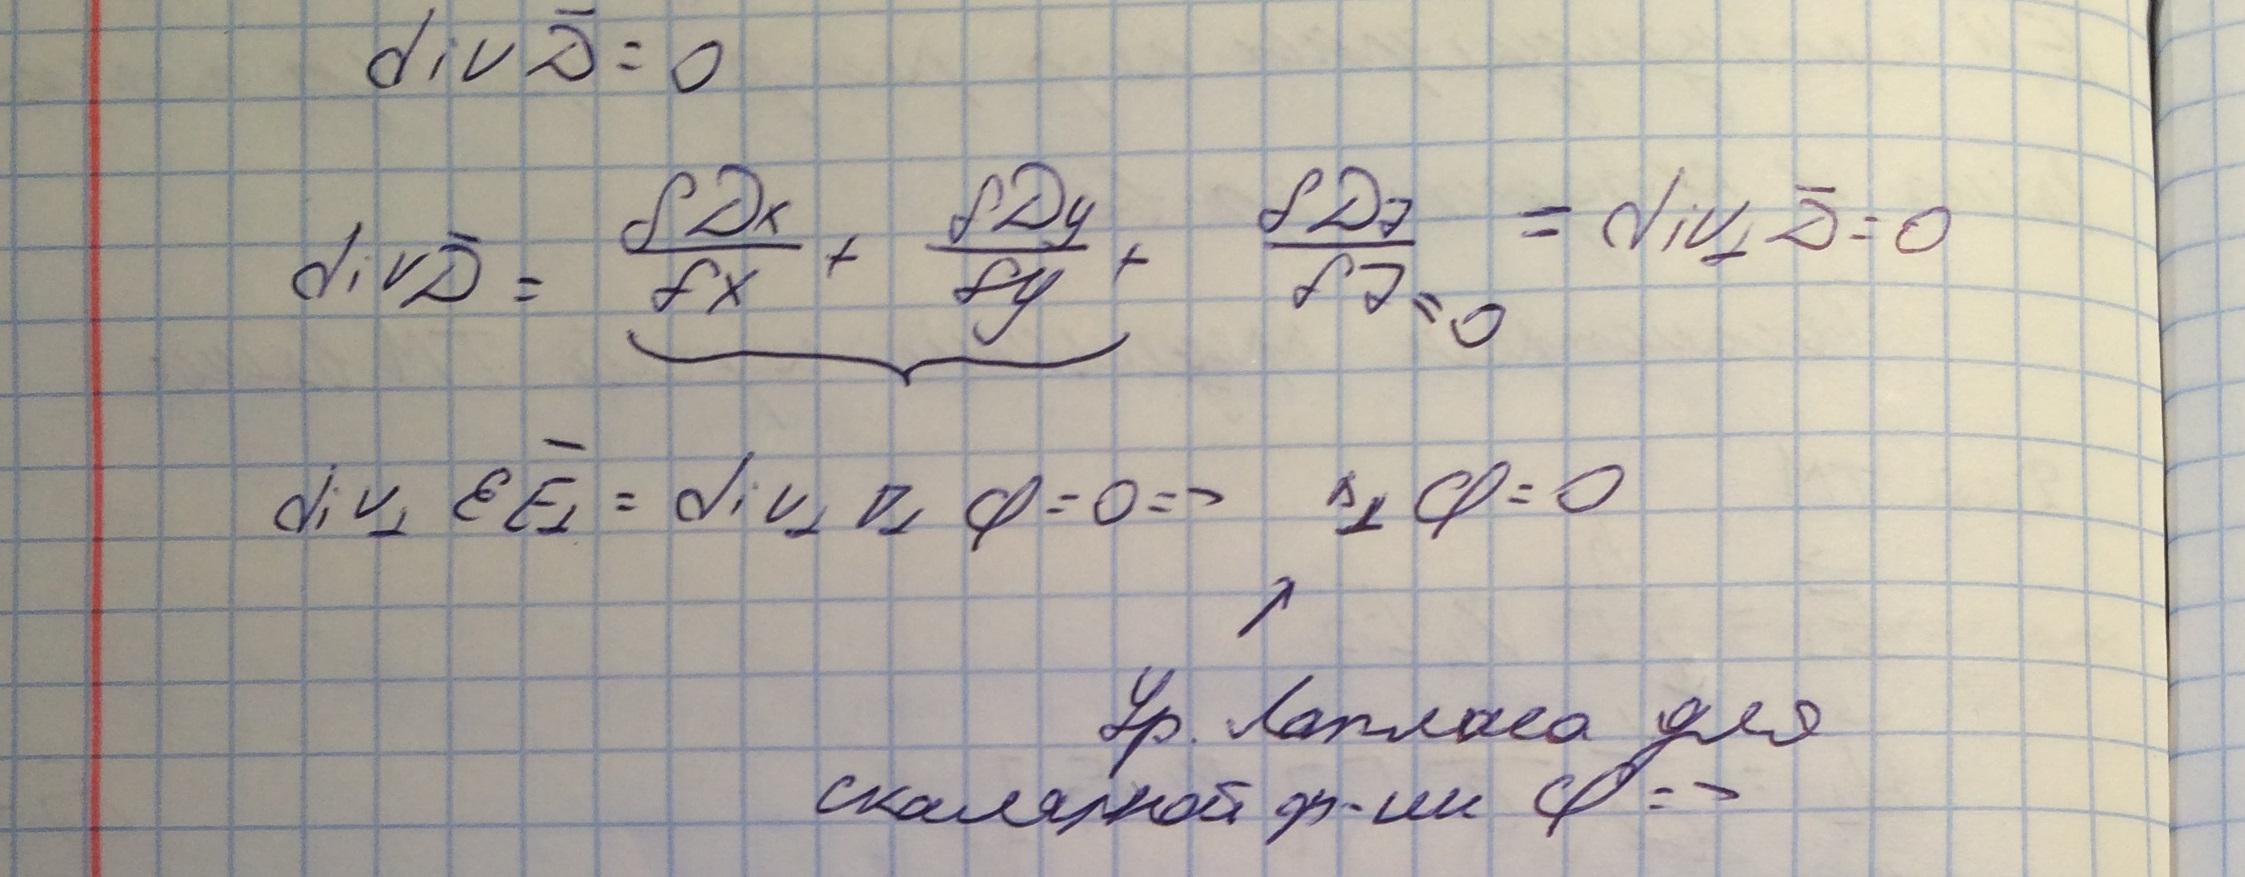 div D̄ = 0
div D̄ = δDx/δx + δDy/δy + δDz/δz = 0 = div⊥ D̄ = 0
div⊥ εĒ⊥ = div⊥ ∇⊥ φ = 0 => Δ⊥ φ = 0
↑
Ур. Лапласа для
скалярной ф-ии φ =>